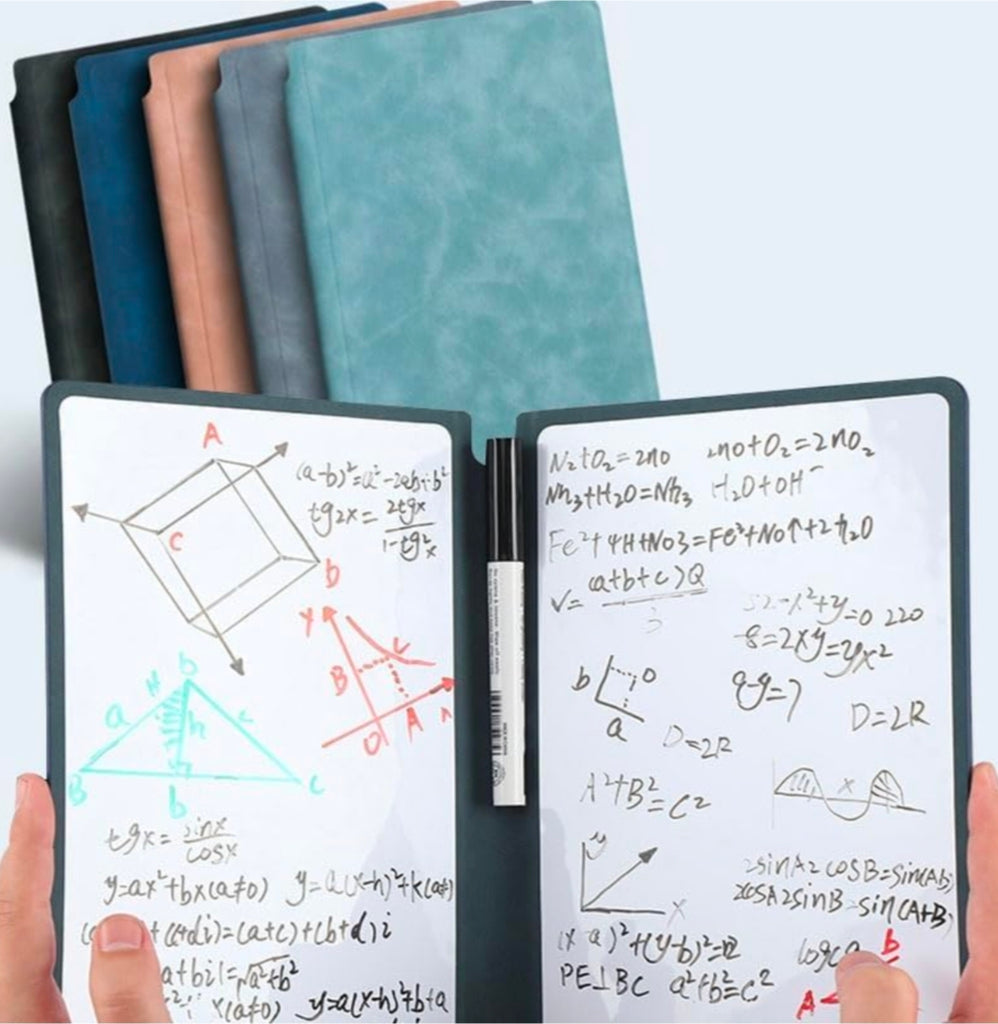 A
C
b
(a-b)²=a²-2ab+b²
tg2x=2tgx/1-tg²x
Y
B
C
O
A
b
H
a
c
h
B
b
C
tgx=sinx/cosx
y=ax²+bx(a≠0) y=a(x-h)²+k(a≠
+(c+di)=(a+c)+(b+d)i
a+bi|=√a²+b²
x(a≠0) y=a(x-h)²+b+a
N₂+O₂=2no 2no+O₂=2nO₂
Nh₃+H₂O=Nh₃ H₂O+OH⁻
Fe²+4H+No3=Fe³+No↑+2h₂O
V=(a+b+c)Q/3
52-x²+y=0 220
8=2xy=yx²
b
O
a
qy=7
D=2R
D=2R
A²+B²=C²
x
y
x
2sinA2cosB=sin(Ab)
2cosA2sinB=sin(A+B)
(x-a)²+(y-b)²=
PE⊥BC a²+b²=c²
logca
b
A